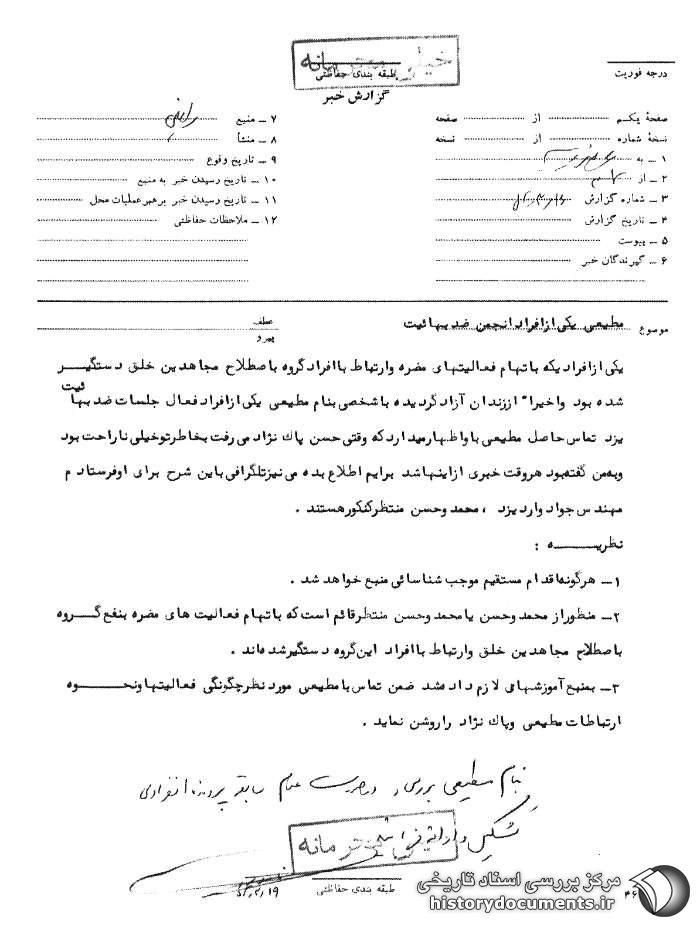 خیلی محرمانه
طبقه بندی حفاظتی
گزارش خبر
درجه فوریت
صفحهٔ یکم از صفحه
نسخهٔ شماره از نسخه
۱ ــ به
۲ ــ از
۳ ــ شماره گزارش
۴ ــ تاریخ گزارش
۵ ــ پیوست
۶ ــ گیرندگان خبر
۷ ــ منبع
۸ ــ منشأ
۹ ــ تاریخ وقوع
۱۰ ــ تاریخ رسیدن خبر به منبع
۱۱ ــ تاریخ رسیدن خبر برهبر عملیات محل
۱۲ ــ ملاحظات حفاظتی
موضوع مطیعی یکی از افراد انجمن ضد بهائیت
عطف
پیرو
یکی از افرادیکه باتهام فعالیتهای مضره وارتباط با افراد گروه باصطلاح مجاهدین خلق دستگیر
شده بود واخیرا" اززندان آزاد گردیده باشخصی بنام مطیعی یکی از افراد فعال جلسات ضد بهائیت
یزد تماس حاصل مطیعی باواظهارمیدارد که وقتی حسن پاک نژاد می رفت بخاطر تو خیلی ناراحت بود
وبه من گفته بود هروقت خبری ازاینها شد برایم اطلاع بده می نیز تلگرافی باین شرح برای اوفرستادم
مهندس جواد وارد یزد ، محمد وحسن منتظر کنکور هستند .
نظریـــه :
۱ــ هرگونه اقدام مستقیم موجب شناسائی منبع خواهد شد .
۲ــ منظور از محمد وحسن یا محمد وحسن منتظر قائم است که باتهام فعالیت های مضره بنفع گـروه
باصطلاح مجاهدین خلق وارتباط با افراد این گروه دستگیر شده اند .
۳ــ بمنبع آموزشهای لازم داده شد ضمن تماس با مطیعی مورد نظر چگونگی فعالیتها ونحـــوه
ارتباطات مطیعی وپاک نژاد را روشن نماید .
بنام مطیعی بررسی و درصورت عدم سابقه پرونده انفرادی
تشکیل و ارائه فرمائید
خیلی محرمانه
طبقه بندی حفاظتی
مرکز بررسی اسناد تاریخی
historydocuments.ir